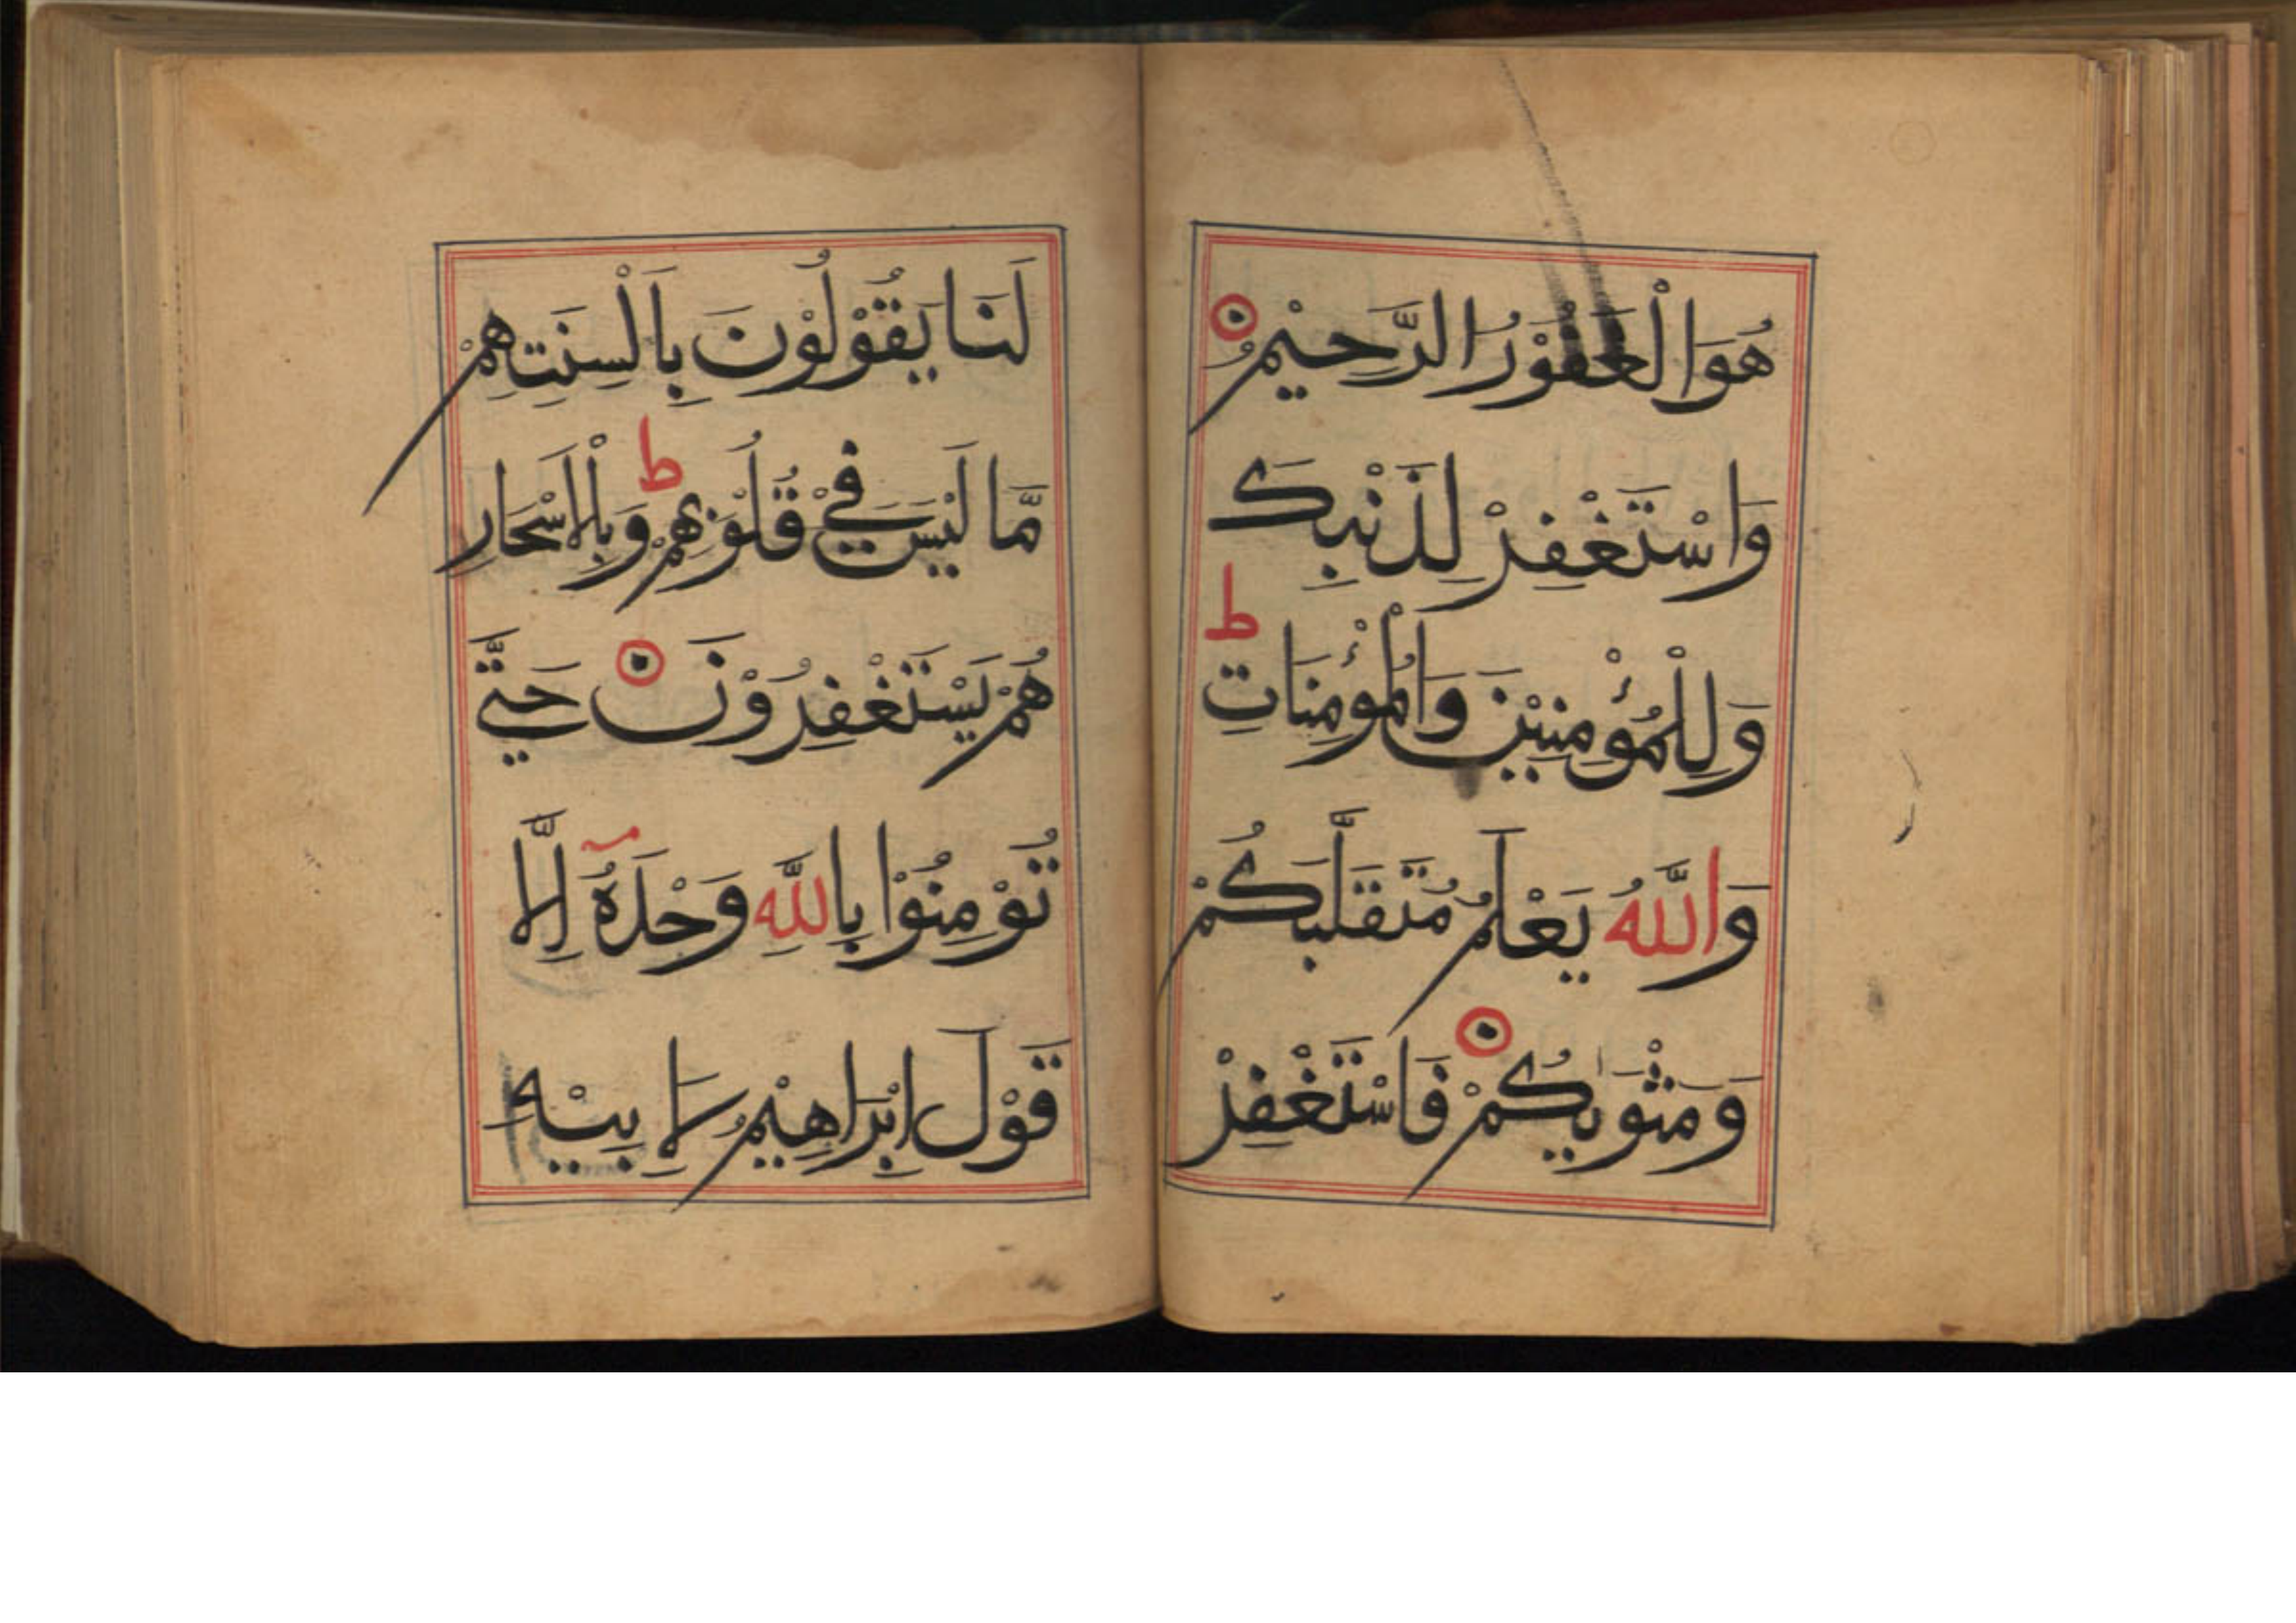 هُوَ الْغَفُوْرُ الرَّحِيْمُ
وَاسْتَغْفِرْ لِذَنْبِكَ
وَلِلْمُؤْمِنِيْنَ وَالْمُؤْمِنَاتِ ط
وَاللَّهُ يَعْلَمُ مُتَقَلَّبَكُمْ
وَمَثْوٰيكُمْ فَاسْتَغْفِرْ
لَنَا يَقُوْلُوْنَ بِاَلْسِنَتِهِمْ
مَّا لَيْسَ فِيْ قُلُوْبِهِمْ ط وَبِالْاَسْحَارِ
هُمْ يَسْتَغْفِرُوْنَ حَتَّي
تُوْمِنُوْا بِاللَّهِ وَحْدَهُ اِلَّا
قَوْلَ اِبْرَاهِيْمَ لِاَبِيْهِ